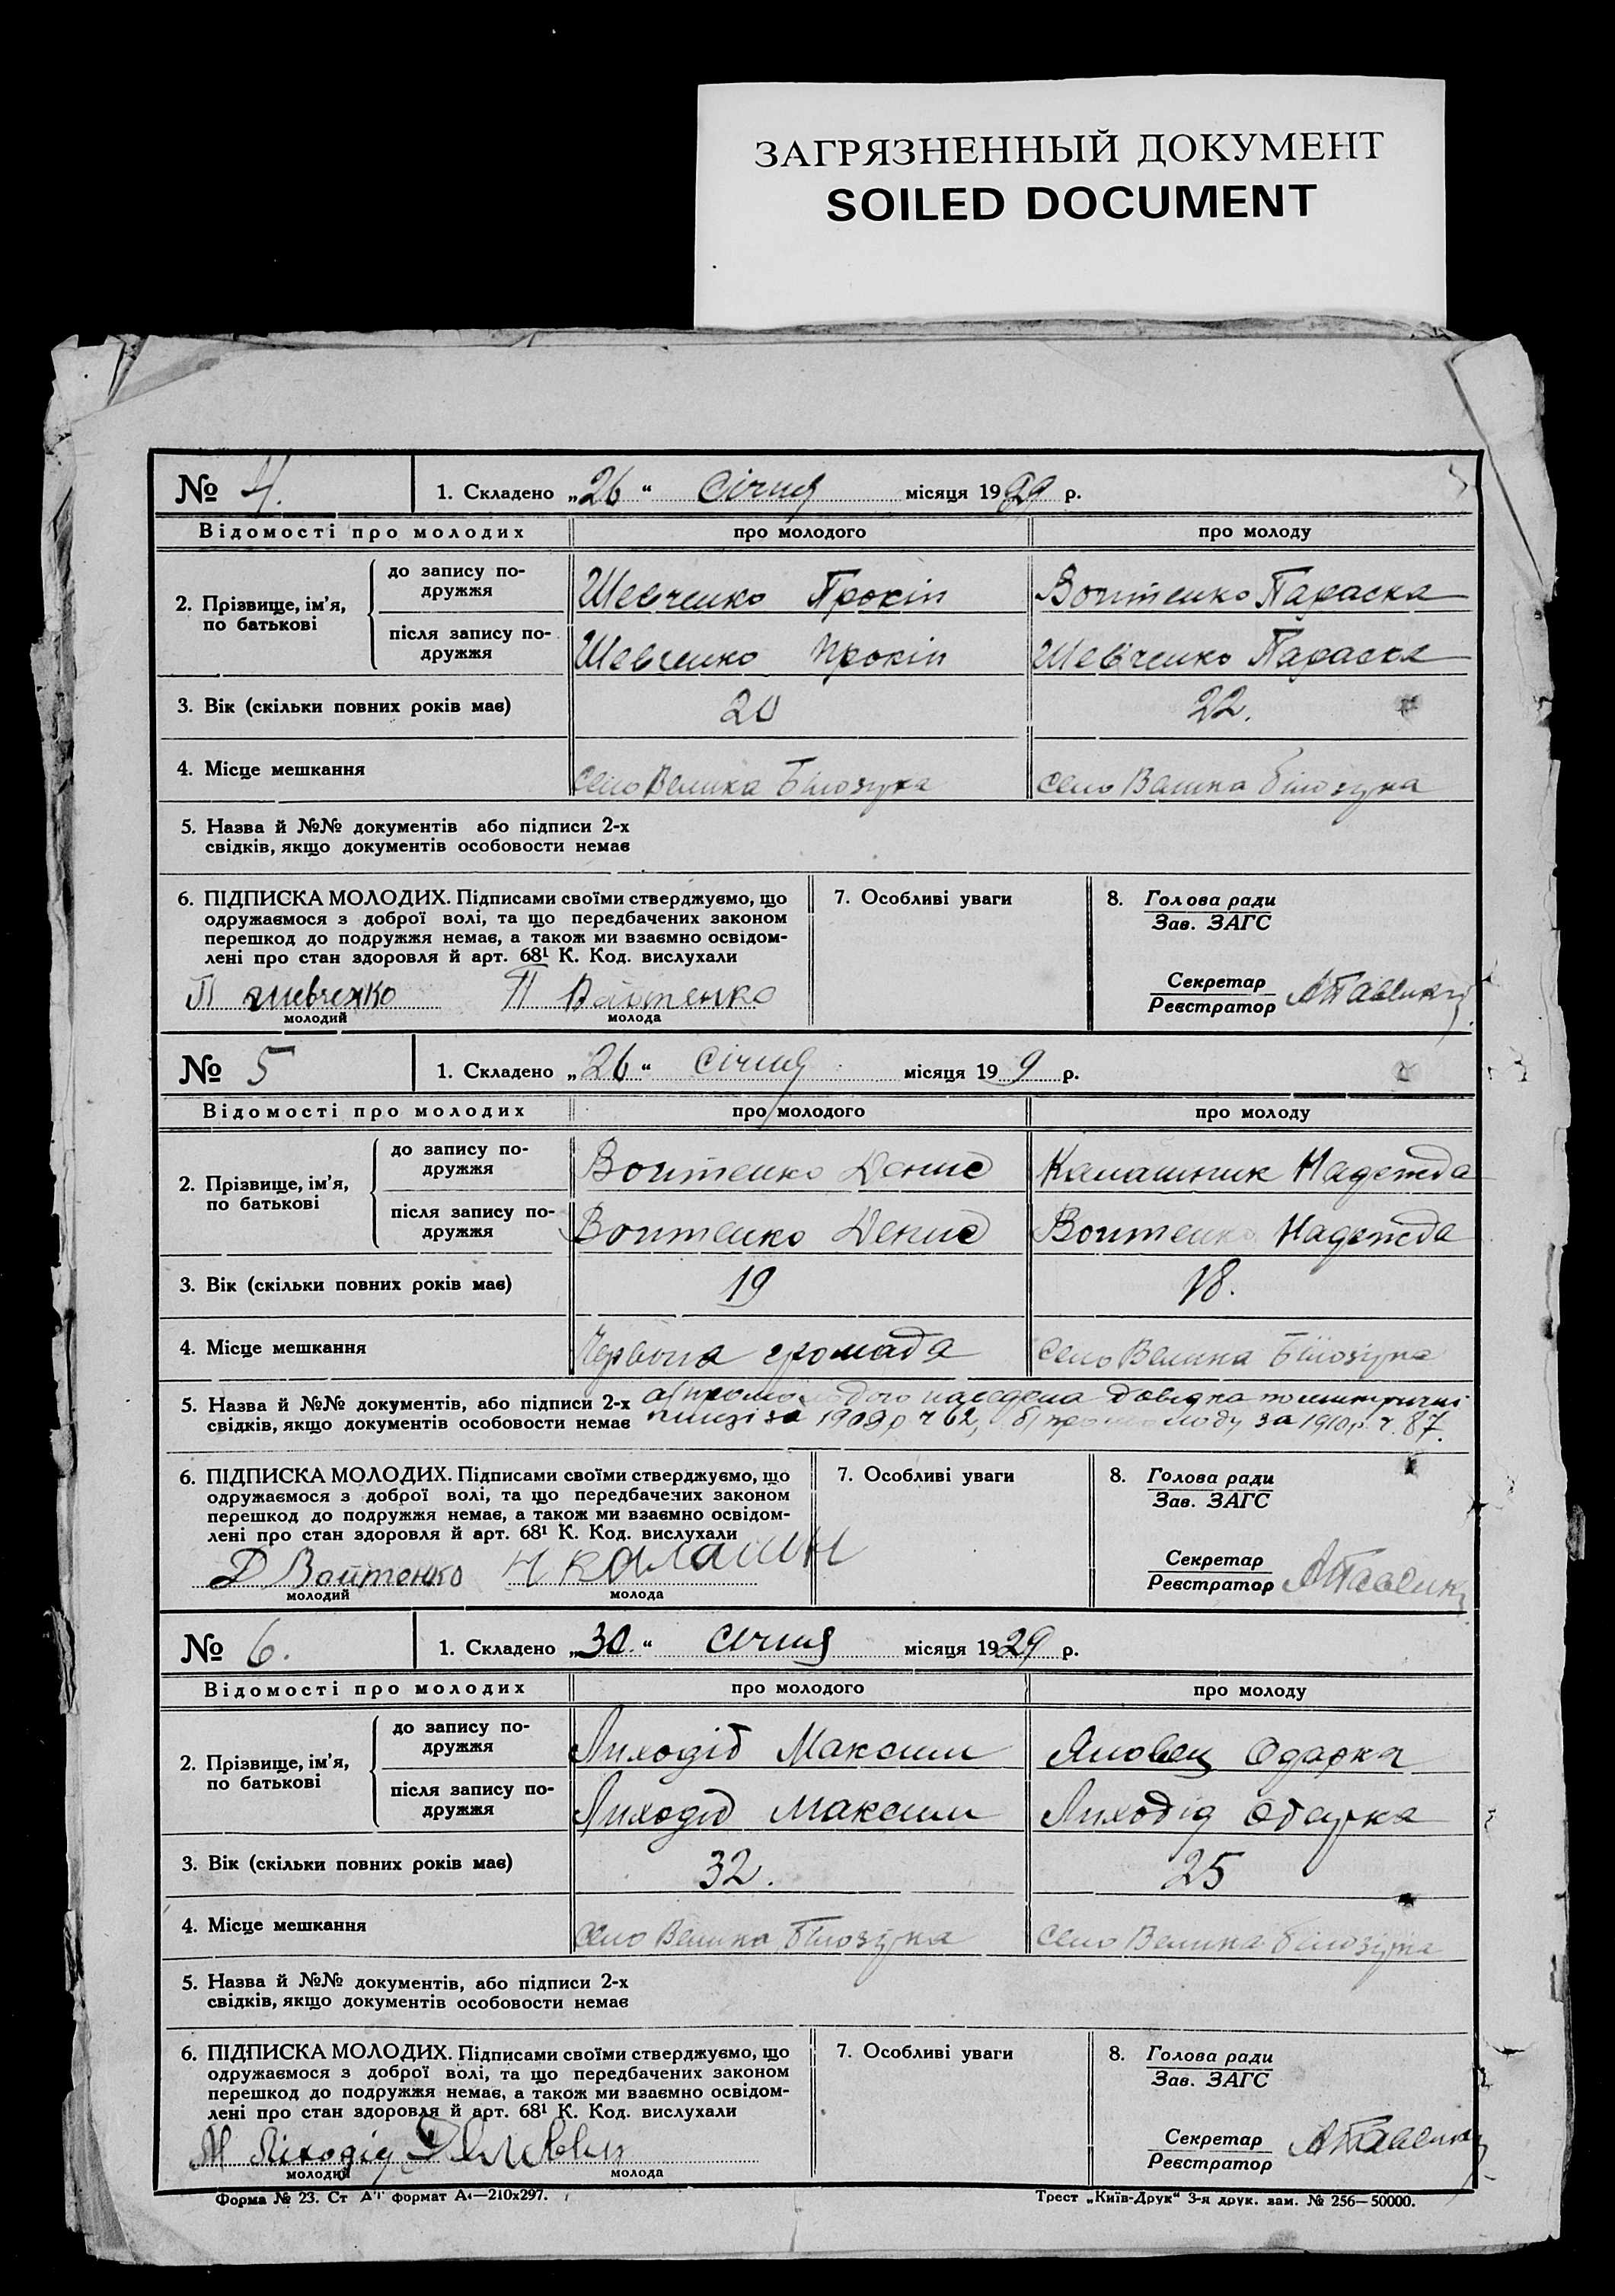 ЗАГРЯЗНЕННЫЙ ДОКУМЕНТ
SOILED DOCUMENT
№ 4. 1. Складено „26“ Січня місяця 1929 р.
Відомості про молодих про молодого про молоду
2. Прізвище, ім’я, по батькові
до запису подружжя Шевченко Прокіп Воитенко Параска
після запису подружжя Шевченко Прокіп Шевченко Параска
3. Вік (скільки повних років має) 20 22.
4. Місце мешкання село Велика Білозірка село Велика Білозірка
5. Назва й №№ документів або підписи 2-х
свідків, якщо документів особовости немає
6. ПІДПИСКА МОЛОДИХ. Підписами своїми стверджуємо, що
одружаємося з доброї волі, та що передбачених законом
перешкод до подружжя немає, а також ми взаємно освідом-
лені про стан здоровля й арт. 68¹ К. Код. вислухали
П Шевченко П Войтенко
молодий молода
7. Особливі уваги
8. Голова ради
Зав. ЗАГС
Секретар
Реєстратор
№ 5 1. Складено „26“ Січня місяця 19 9 р.
Відомості про молодих про молодого про молоду
2. Прізвище, ім’я, по батькові
до запису подружжя Воитенко Денис Калашник Надежда
після запису подружжя Воитенко Денис Воитенко Надежда
3. Вік (скільки повних років має) 19 18.
4. Місце мешкання Червона громада село Велика Білозірка
5. Назва й №№ документів, або підписи 2-х
свідків, якщо документів особовости немає
довідка
за 1909 р ч 62, за 1910 р. ч. 87.
6. ПІДПИСКА МОЛОДИХ. Підписами своїми стверджуємо, що
одружаємося з доброї волі, та що передбачених законом
перешкод до подружжя немає, а також ми взаємно освідом-
лені про стан здоровля й арт. 68¹ К. Код. вислухали
Д Войтенко Н Калашн
молодий молода
7. Особливі уваги
8. Голова ради
Зав. ЗАГС
Секретар
Реєстратор
№ 6. 1. Складено „30.“ Січня місяця 1929 р.
Відомості про молодих про молодого про молоду
2. Прізвище, ім’я, по батькові
до запису подружжя Лиходід Максим Яловец Одарка
після запису подружжя Лиходід Максим Лиходід Одарка
3. Вік (скільки повних років має) 32. 25
4. Місце мешкання село Велика Білозірка село Велика Білозірка
5. Назва й №№ документів, або підписи 2-х
свідків, якщо документів особовости немає
6. ПІДПИСКА МОЛОДИХ. Підписами своїми стверджуємо, що
одружаємося з доброї волі, та що передбачених законом
перешкод до подружжя немає, а також ми взаємно освідом-
лені про стан здоровля й арт. 68¹ К. Код. вислухали
М Ліходід
молодий молода
7. Особливі уваги
8. Голова ради
Зав. ЗАГС
Секретар
Реєстратор
Форма № 23. Ст формат А₄—210х297.
Трест „Київ-Друк“ 3-я друк. зам. № 256—50000.